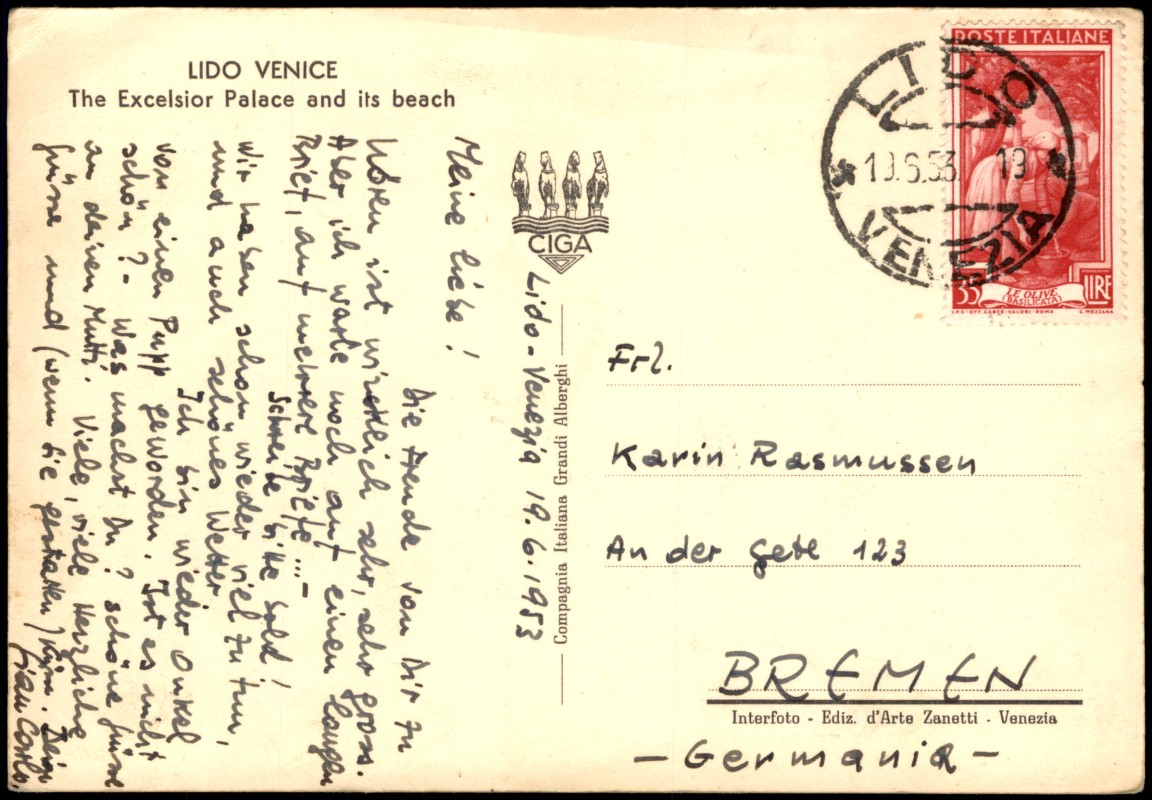 LIDO VENICE
The Excelsior Palace and its beach
Meine liebe!
Die Freude von Dir zu
hören ist wirklich sehr, sehr gross.
Aber ich warte noch auf einen langen
Brief, auf mehrere Briefe...-
Schreibe bitte bald!
Wir haben schon wieder viel zu tun,
und auch schönes Wetter.
Ich bin wieder Onkel
von einen Pupp geworden. Ist es nicht
schön? - Was machst Du? schöne grüsse
an deinen Mutti. Viele, viele herzliche
grüsse und (wenn Sie gestatten) Küsse. Dein
Gian Carlo.
CIGA
Lido-Venezia 19.6.1953
Compagnia Italiana Grandi Alberghi
POSTE ITALIANE
35 LIRE
LE OLIVE
(BASILICATA)
I.P.S-OFF. CARTE-VALORI-ROMA C. MEZZANA
LIDO
19.6.53. 19
VENEZIA
Frl.
Karin Rasmussen
An der Gete 123
BREMEN
Interfoto - Ediz. d'Arte Zanetti - Venezia
- Germania -